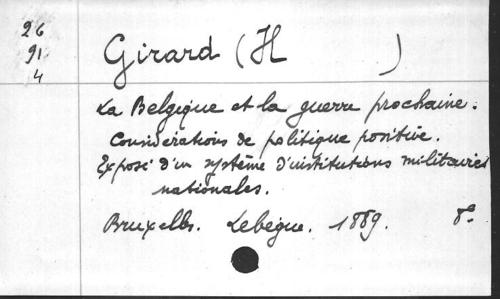 26
91
4
Girard (H )
La Belgique et la guerre prochaine.
Considérations de politique positive.
Exposé d'un système d'institutions militaires
nationales.
Bruxelles. Lebègue. 1889. 8°